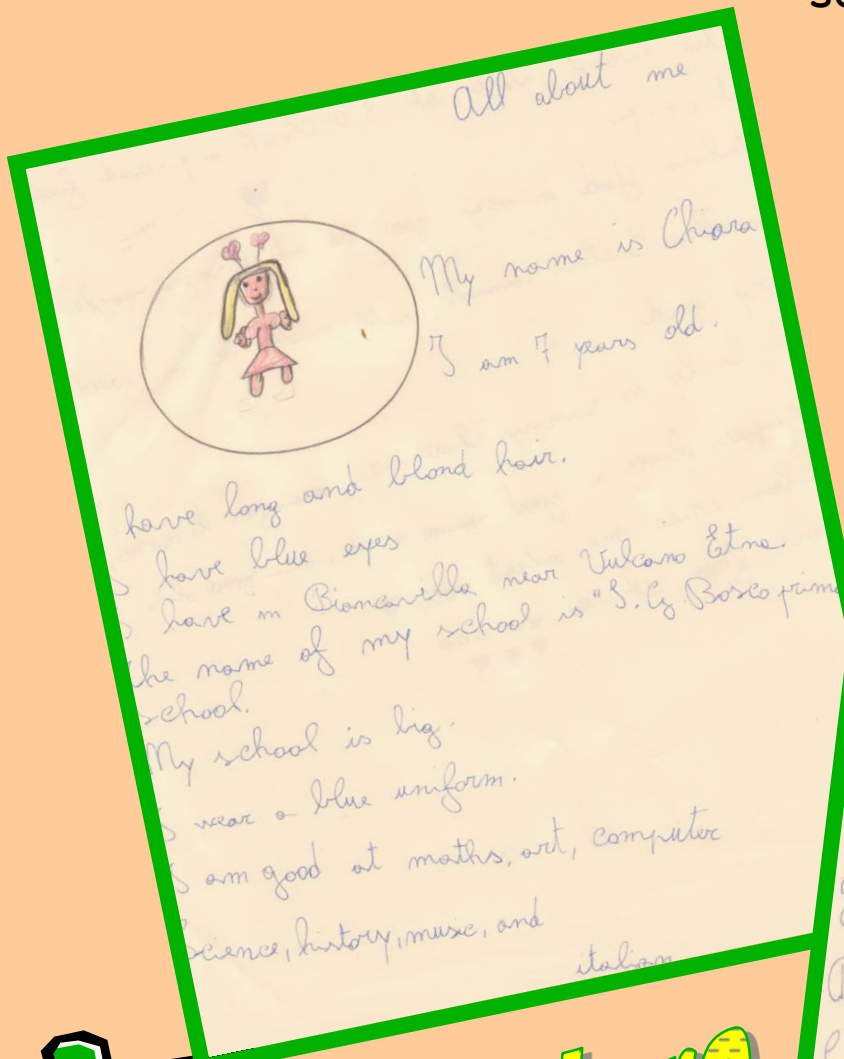 All about me
My name is Chiara
I am 7 years old.
have long and blond hair.
I have blue eyes
I have in Biancavilla near Vulcano Etna.
the name of my school is "S. G. Bosco prima
school.
My school is big.
I wear a blue uniform.
I am good at maths, art, computer
science, history, music, and
italian